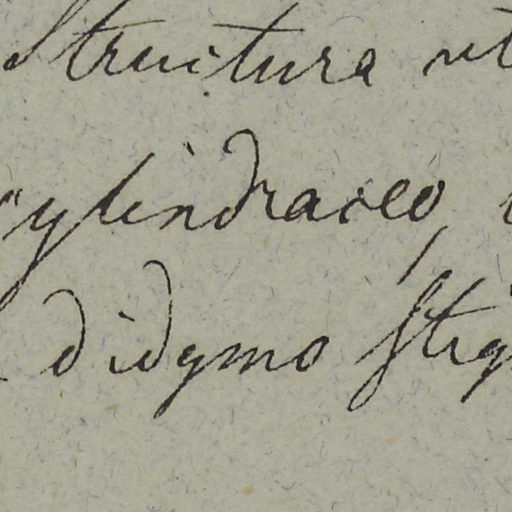 Structura ut
cylindraceo,
didymo Stig